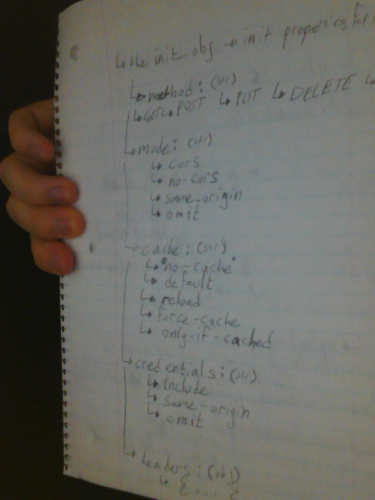 ↳ the init obj → init properties for
↳ method: (str)
↳ GET ↳ POST ↳ PUT ↳ DELETE ↳
↳ mode: (str)
↳ cors
↳ no-cors
↳ same-origin
↳ omit
↳ cache: (str)
↳ "no-cache"
↳ default
↳ reload
↳ force-cache
↳ only-if-cached
↳ credentials: (str)
↳ include
↳ same-origin
↳ omit
↳ headers: (obj)
↳ {....}